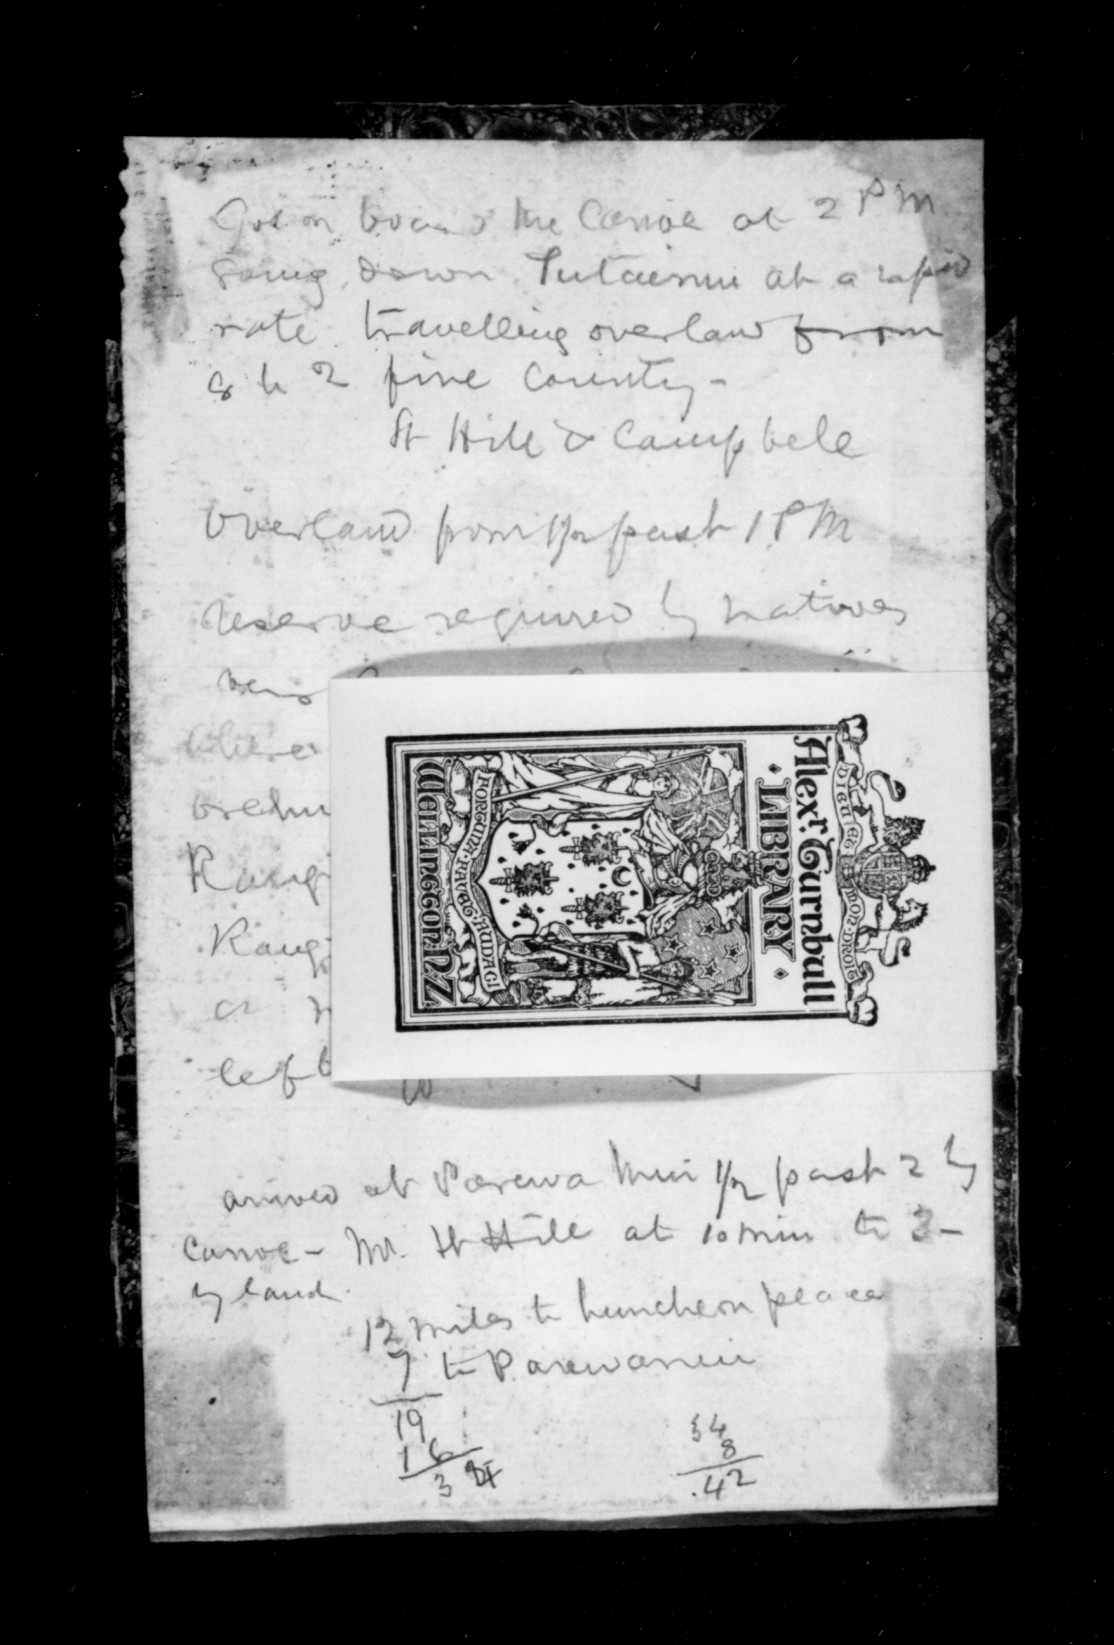 Got on board the Canoe at 2 PM
going down Tutaenui at a rapid
rate travelling overland from
8 to 2 fine Country -
St Hill & Campbell
Overland from 1/2 past 1 PM
reserve required by natives
very
where
Rang
Rang
a
left
Alexr. Turnbull
LIBRARY
DIEU ET MON DROIT
FORTUNA FAVET AUDACI
WELLINGTON. N.Z
arrived at Parewa Nui 1/2 past 2 by
Canoe - Mr. St Hill at 10 min to 3 -
by land
12 miles to luncheon place
7 to Parewanui
19
16
3
34
8
.42